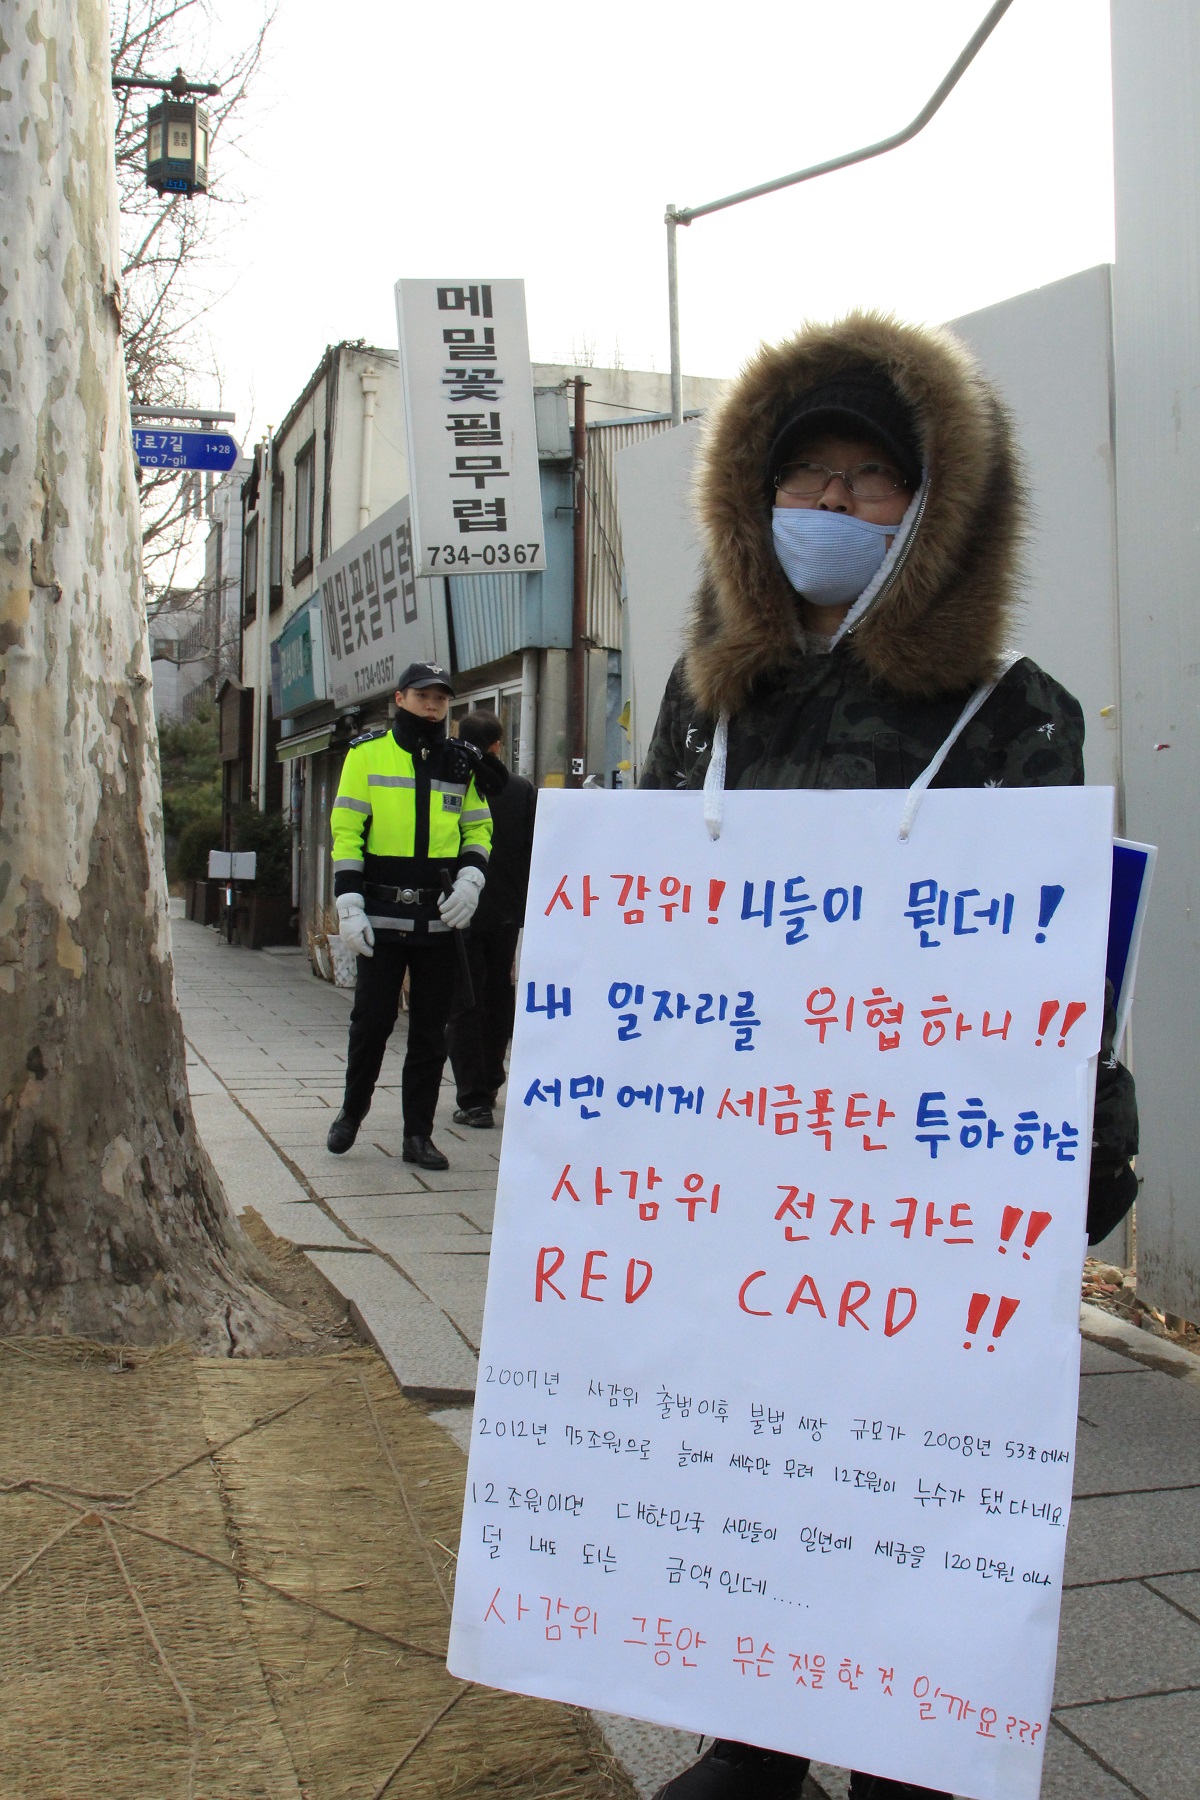 메밀꽃필무렵
734-0367
로7길 1→28
-ro 7-gil
메밀꽃필무렵
T.734-0367
사감위! 니들이 뭔데!
내 일자리를 위협하니!!
서민에게 세금폭탄 투하하는
사감위 전자카드!!
RED CARD !!
2007년 사감위 출범이후 불법 시장 규모가 2008년 53조에서
2012년 75조원으로 늘어서 세수만 무려 12조원이 누수가 됐다네요.
12조원이면 대한민국 서민들이 일년에 세금을 120만원이나
덜 내도 되는 금액인데.....
사감위 그동안 무슨 짓을 한 것 일까요???